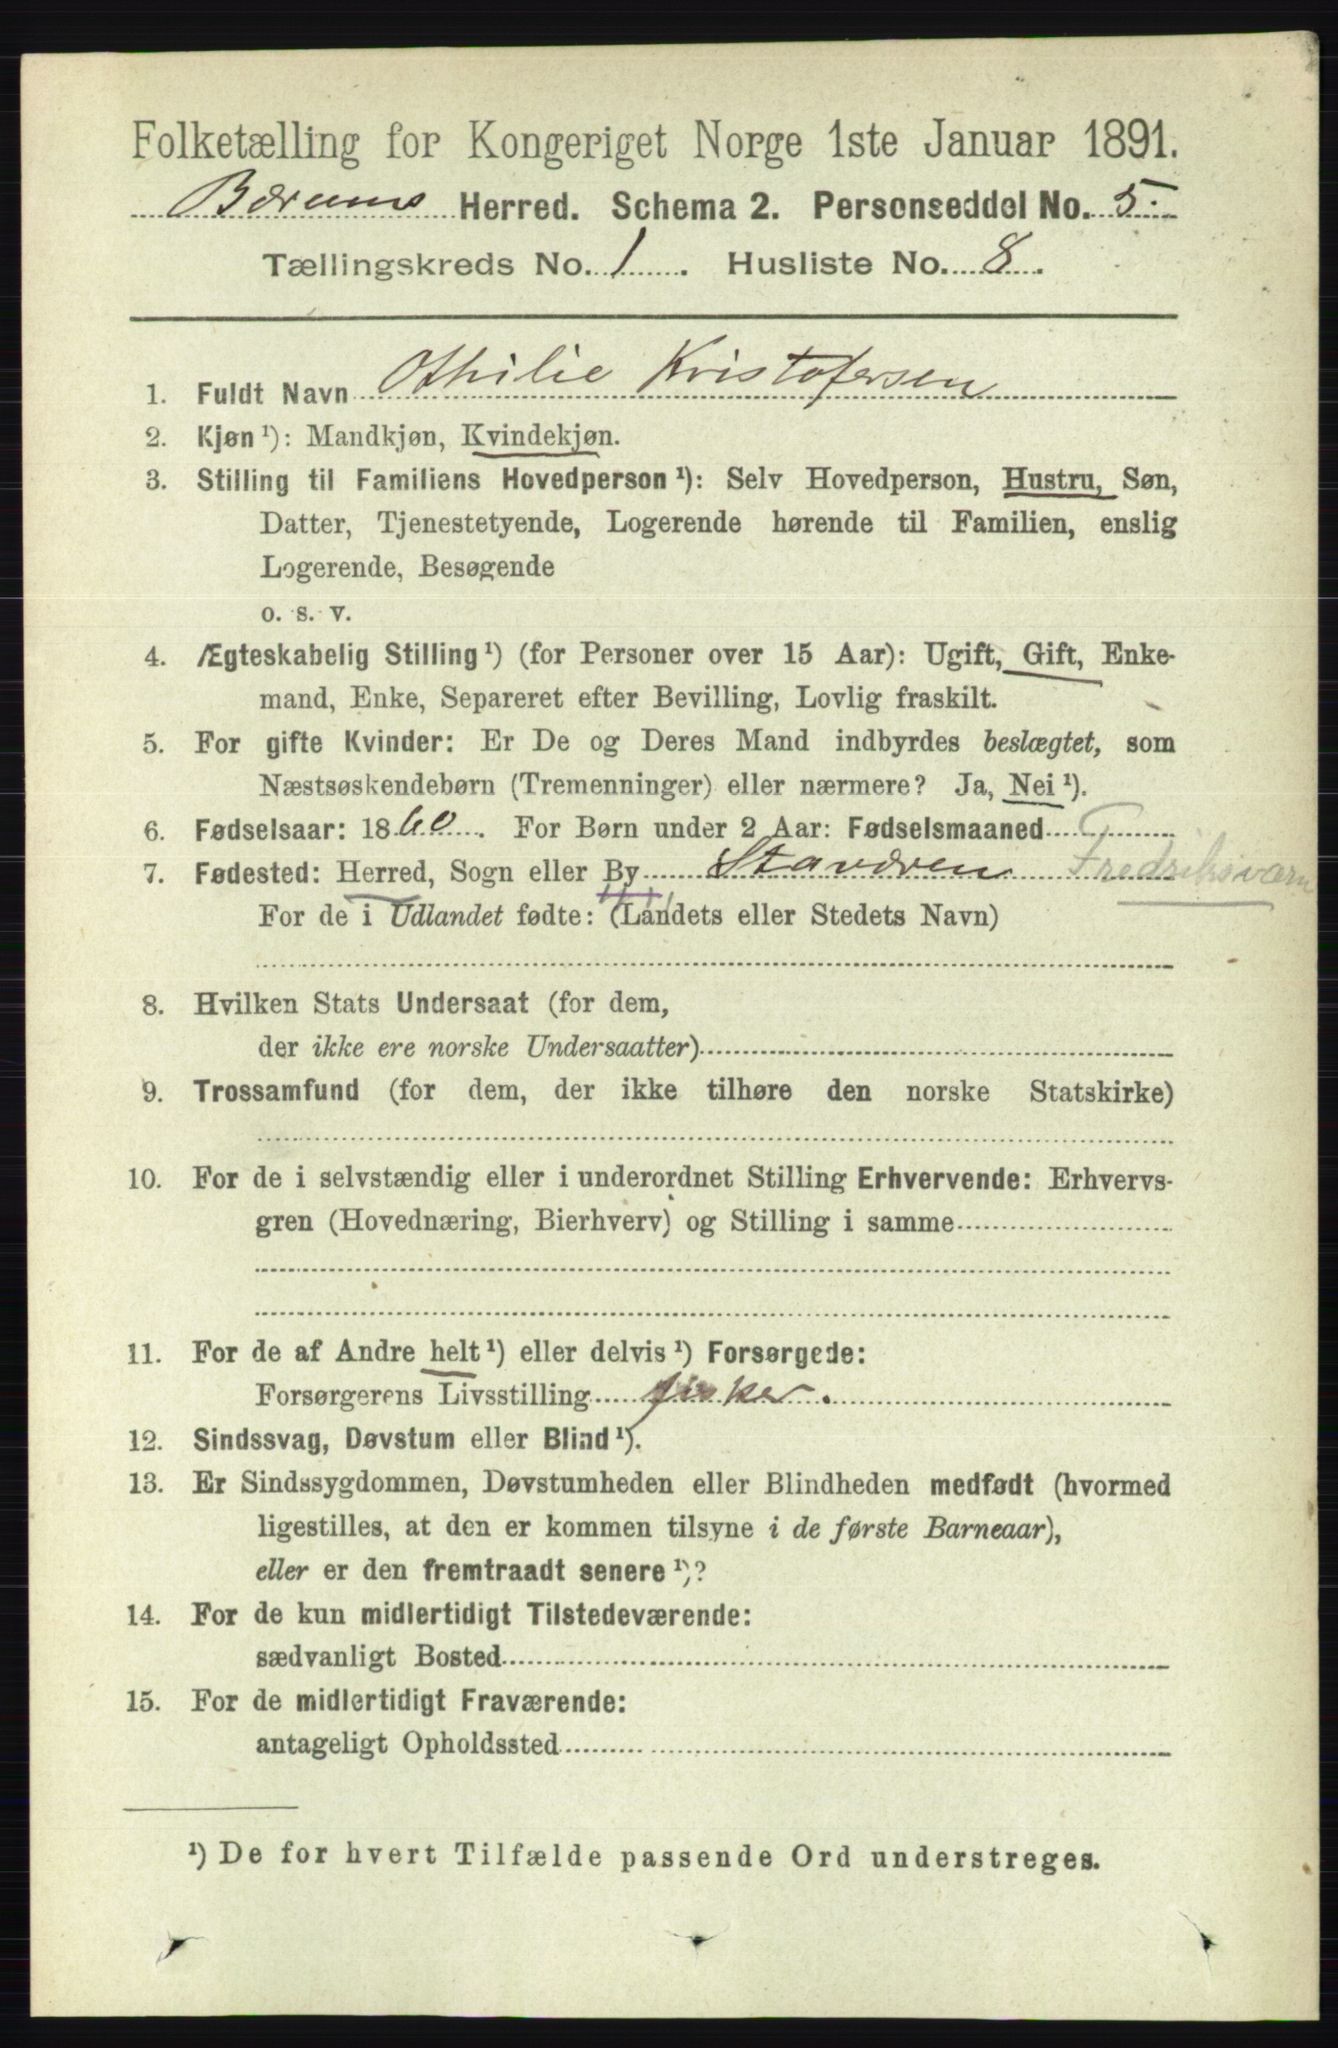 Folketælling for Kongeriget Norge 1ste Januar 1891.
Bærums Herred. Schema 2. Personseddel No. 5.
Tællingskreds No. 1. Husliste No. 8.
1. Fuldt Navn Othilie Kristofersen
2. Kjøn ¹): Mandkjøn, Kvindekjøn.
3. Stilling til Familiens Hovedperson ¹): Selv Hovedperson, Hustru, Søn,
Datter, Tjenestetyende, Logerende hørende til Familien, enslig
Logerende, Besøgende
o. s. v.
4. Ægteskabelig Stilling ¹) (for Personer over 15 Aar): Ugift, Gift, Enke-
mand, Enke, Separeret efter Bevilling, Lovlig fraskilt.
5. For gifte Kvinder: Er De og Deres Mand indbyrdes beslægtet, som
Næstsøskendebørn (Tremenninger) eller nærmere? Ja, Nei ¹).
6. Fødselsaar: 1860. For Børn under 2 Aar: Fødselsmaaned
7. Fødested: Herred, Sogn eller By Staværen Fredriksværn
For de i Udlandet fødte: (Landets eller Stedets Navn)
8. Hvilken Stats Undersaat (for dem,
der ikke ere norske Undersaatter)
9. Trossamfund (for dem, der ikke tilhøre den norske Statskirke)
10. For de i selvstændig eller i underordnet Stilling Erhvervende: Erhvervs-
gren (Hovednæring, Bierhverv) og Stilling i samme
11. For de af Andre helt ¹) eller delvis ¹) Forsørgede:
Forsørgerens Livsstilling fisker.
12. Sindssvag, Døvstum eller Blind ¹).
13. Er Sindssygdommen, Døvstumheden eller Blindheden medfødt (hvormed
ligestilles, at den er kommen tilsyne i de første Barneaar),
eller er den fremtraadt senere ¹)?
14. For de kun midlertidigt Tilstedeværende:
sædvanligt Bosted
15. For de midlertidigt Fraværende:
antageligt Opholdssted
¹) De for hvert Tilfælde passende Ord understreges.